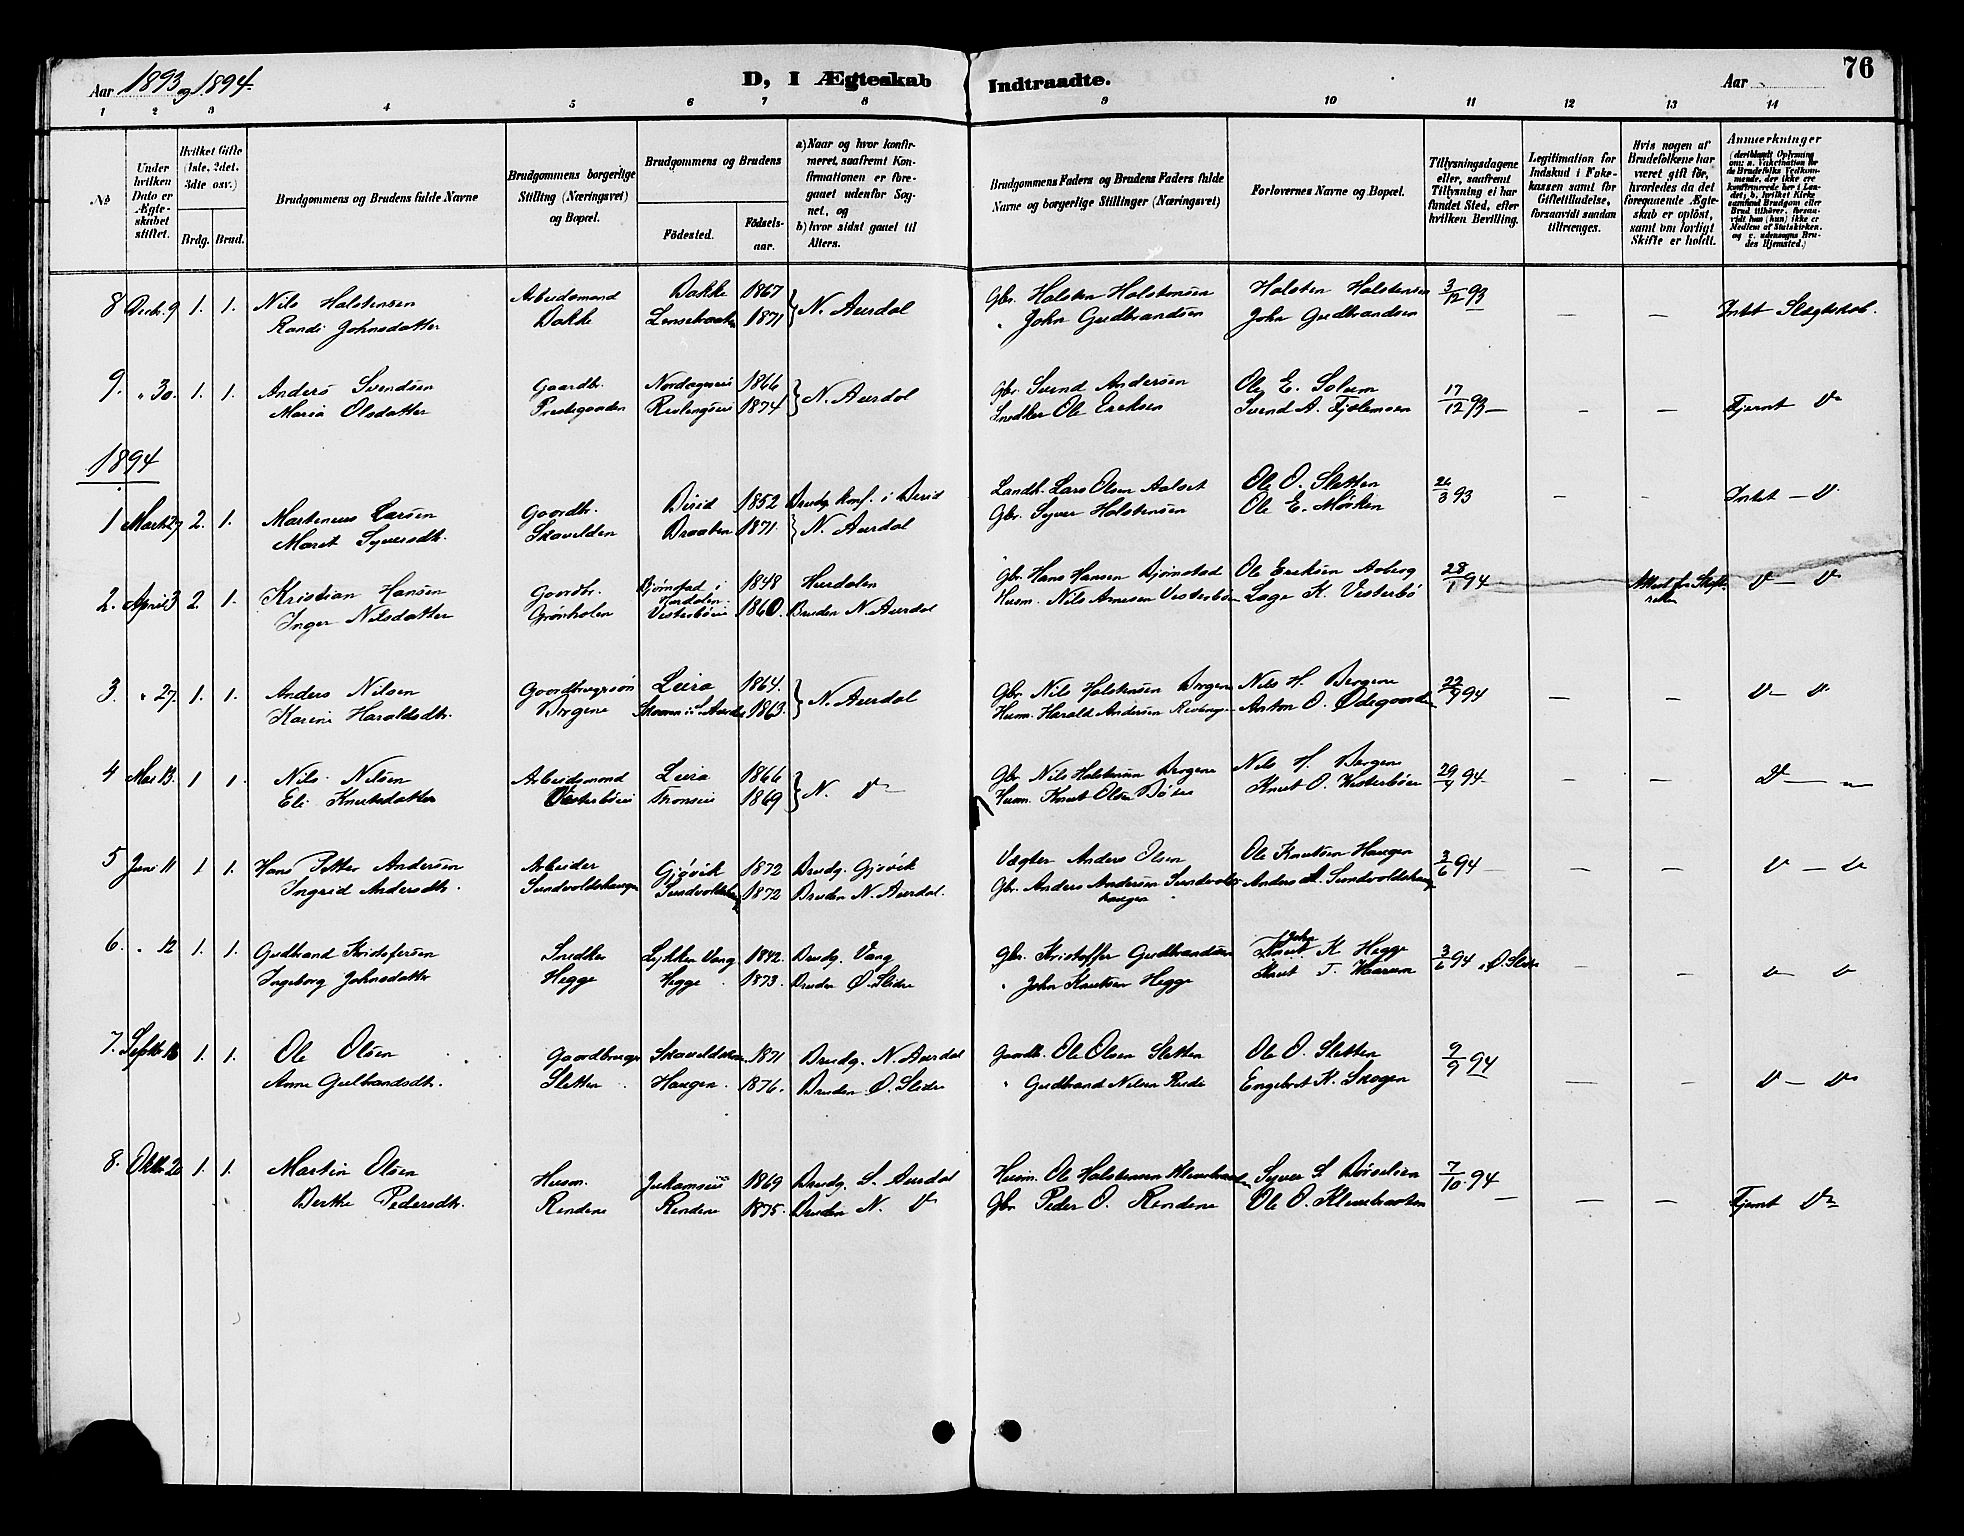 Aar 1893 og 1894.
D, I Ægteskab Indtraadte.
Aar
76
1 2 3 4 5 6 7 8 9 10 11 12 13 14
No
Under hvilken Dato er Ægteskabet stiftet.
Hvilket Gifte (1ste, 2det, 3die osv.)
Brdg. Brud.
Brudgommens og Brudens fulde Navne
Brudgommens borgerlige Stilling (Næringsvei) og Bopæl.
Brudgommens og Brudens
Fødested.
Fødselsaar.
a) Naar og hvor konfirmeret, saafremt Konfirmationen er foregaaet udenfor Sognet, og
b) hvor sidst gaaet til Alters.
Brudgommens Faders og Brudens Faders fulde Navne og borgerlige Stillinger (Næringsvei)
Forlovernes Navne og Bopæl.
Tillysningsdagene eller, saafremt Tillysning ei har fundet Sted, efter hvilken Bevilling.
Legitimation for Indskud i Enkekassen samt for Giftetilladelse, forsaavidt saadan tiltrænges.
Hvis nogen af Brudefolkene har været gift før, hvorledes da det foregaaende Ægteskab er opløst, samt om lovligt Skifte er holdt.
Anmerkninger
(deriblandt Oplysning om: a. Vakcination for de Brudefolks Vedkommende, der ikke ere konfirmerede her i Landet; b. hvilket Kirkesamfund Brudgom eller Brud tilhører, forsaavidt han (hun) ikke er Medlem af Statskirken, og c. udensogns Brudes Hjemsted.)
8 Decbr. 9 1. 1. Nils Halstensen Arbeidsmand Bakke 1867 } N. Aurdal Gbr. Halsten Halstensen Halsten Halstensen 3/12 93 — — Intet Slægtskab.
Randi Johnsdatter Bakke 1871 " John Gudbrandsen John Gudbrandsen
9. " 30. 1. 1. Anders Svendsen Gaardbr. 1866 } N. Aurdal Gbr. Svend Andersen Ole E. Solum 17/12 93 — — — Fjernt Do
Maria Olsdatter 1874 Snedker Ole Eriksen Svend A.
1894
1 Marts 27 2. 1. Martenius Larsen Gaardb. Birid 1852 Brudg. konf. i Berid Landh. Lars Olsen Aalset Ole O. Sletten 26/3 93 — — Intet — D.
Marit Syversdtr. Skavelden Braaten 1871. } N. Aurdal Gbr. Syver Halstensen Ole E. Mörken
2. April 3 2. 1. Kristian Hansen Gaardbr. Bjørnstad i Hurdalen 1848 Hurdalen Gbr. Hans Hansen Bjørnstad Ole Eriksen Aaberg 28/1 94 D — D
Inger Nilsdatter Grønholen Vesterbøeie 1860. Bruden N. Aurdal Husm. Nils Arnesen Vesterbøe Lage K. Vesterbö
3. " 27. 1. 1. Anders Nilsen Gaardbrugersøn Leira 1864. } N. Aurdal Gbr. Nils Halstensen Bergene Nils H. Bergene 22/4 94 — — D — D.
Karine Haraldsdtr. Bergene 1863. Husm. Harald Andersen Anton O. Ødegaarden
4 Mai 13. 1 1. Nils Nilsen Arbeidsmand Leira 1866 } N. Do — Gbr. Nils Halstensen Bergene Nils H. Bergene 29/4 94 — — — D — "
Eli Knutsdatter Vesterbøeie 1869 Husm. Knut Olsen Knut O. Vesterbøeie
5 Juni 11 1 1. Hans Petter Andersen Arbeider Gjövik 1872 Brudg. Gjövik Vægter Anders Olsen Ole Knutsen Haugen 3/6 94 — — — D — Do
Ingrid Andersdtr. Sundvoldshaugen Sundvoldshaug 1872 Bruden N. Aurdal. Gbr. Anders Andersen Sundvoldshaugen Anders A. Sundvoldshaug
6. " 12 1. 1. Gudbrand Kristofersen Snedker Lykken Vang 1842. Brudg. Vang Gbr. Kristoffer Gudbrandsen John K Hegge 3/6 94 i Ø. Slidre — — D D
Ingeborg Johnsdatter Hegge Hegge 1873. Bruden Ø. Slidre " John Knutsen Hegge Knut T.
7. Septbr. 16 1. 1. Ole Olsen Gaardbruger 1871 Brudg. N. Aurdal Gaardb. Ole Olsen Sletten Ole O. Sletten 9/9 94 — — D — Do
Anne Gulbrandsdtr. Sletten Haugen 1876. Bruden Ø. Slidre " Gudbrand Nilsen Rude Engebret K. Skogen
8. Oktbr. 20 1. 1. Martin Olsen Husm. 1869 Brudg. S. Aurdal Husm. Ole Halstensen Syver S. 7/10 94 — — — Fjernt Do
Berthe Pedersdtr. Rendene Rendene 1875. Bruden N. Do Gbr. Peder O. Rendene Ole O.